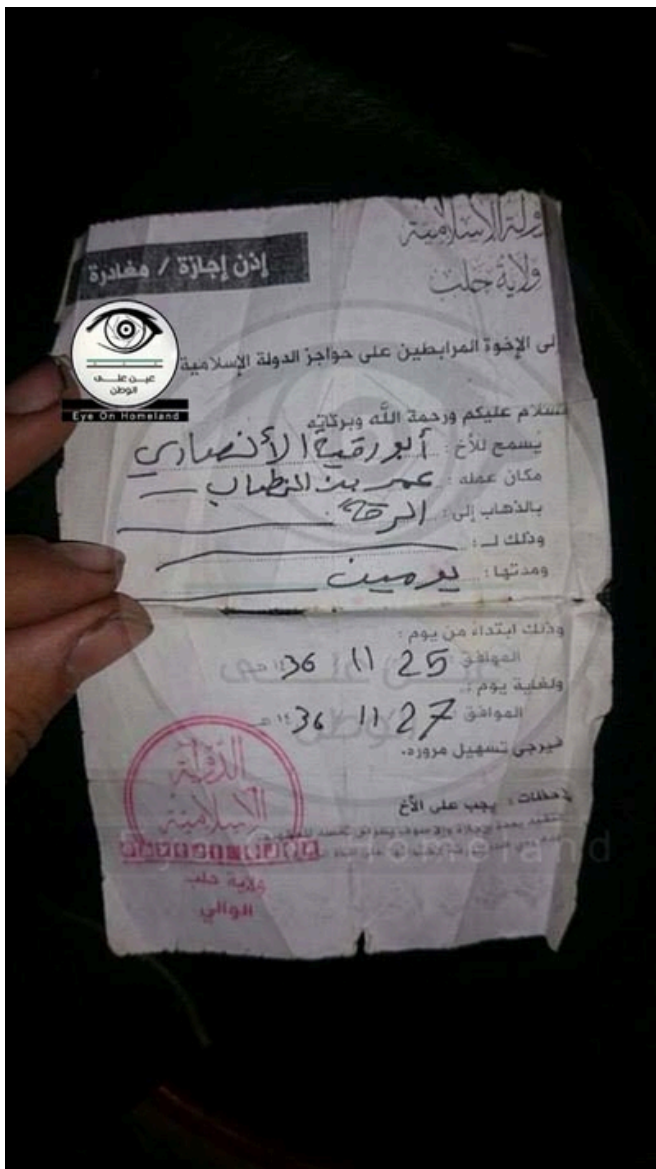 دولة الإسلامية
ولاية حلب
إذن إجازة / مغادرة
عين على
الوطن
Eye On Homeland
إلى الإخوة المرابطين على حواجز الدولة الإسلامية
السلام عليكم ورحمة الله وبركاته
يُسمح للأخ : أبو رقية الأنصاري
مكان عمله : عمر بن الخطاب
بالذهاب إلى : الرقة
وذلك لـ :
ومدتها : يومين
وذلك ابتداءً من يوم :
الموافق : 25 11 1436 هـ
ولغاية يوم :
الموافق : 27 11 1436 هـ
فيرجى تسهيل مروره.
ملاحظات : يجب على الأخ
الدولة
الإسلامية
ولاية حلب
الوالي
عين على
الوطن
Homeland